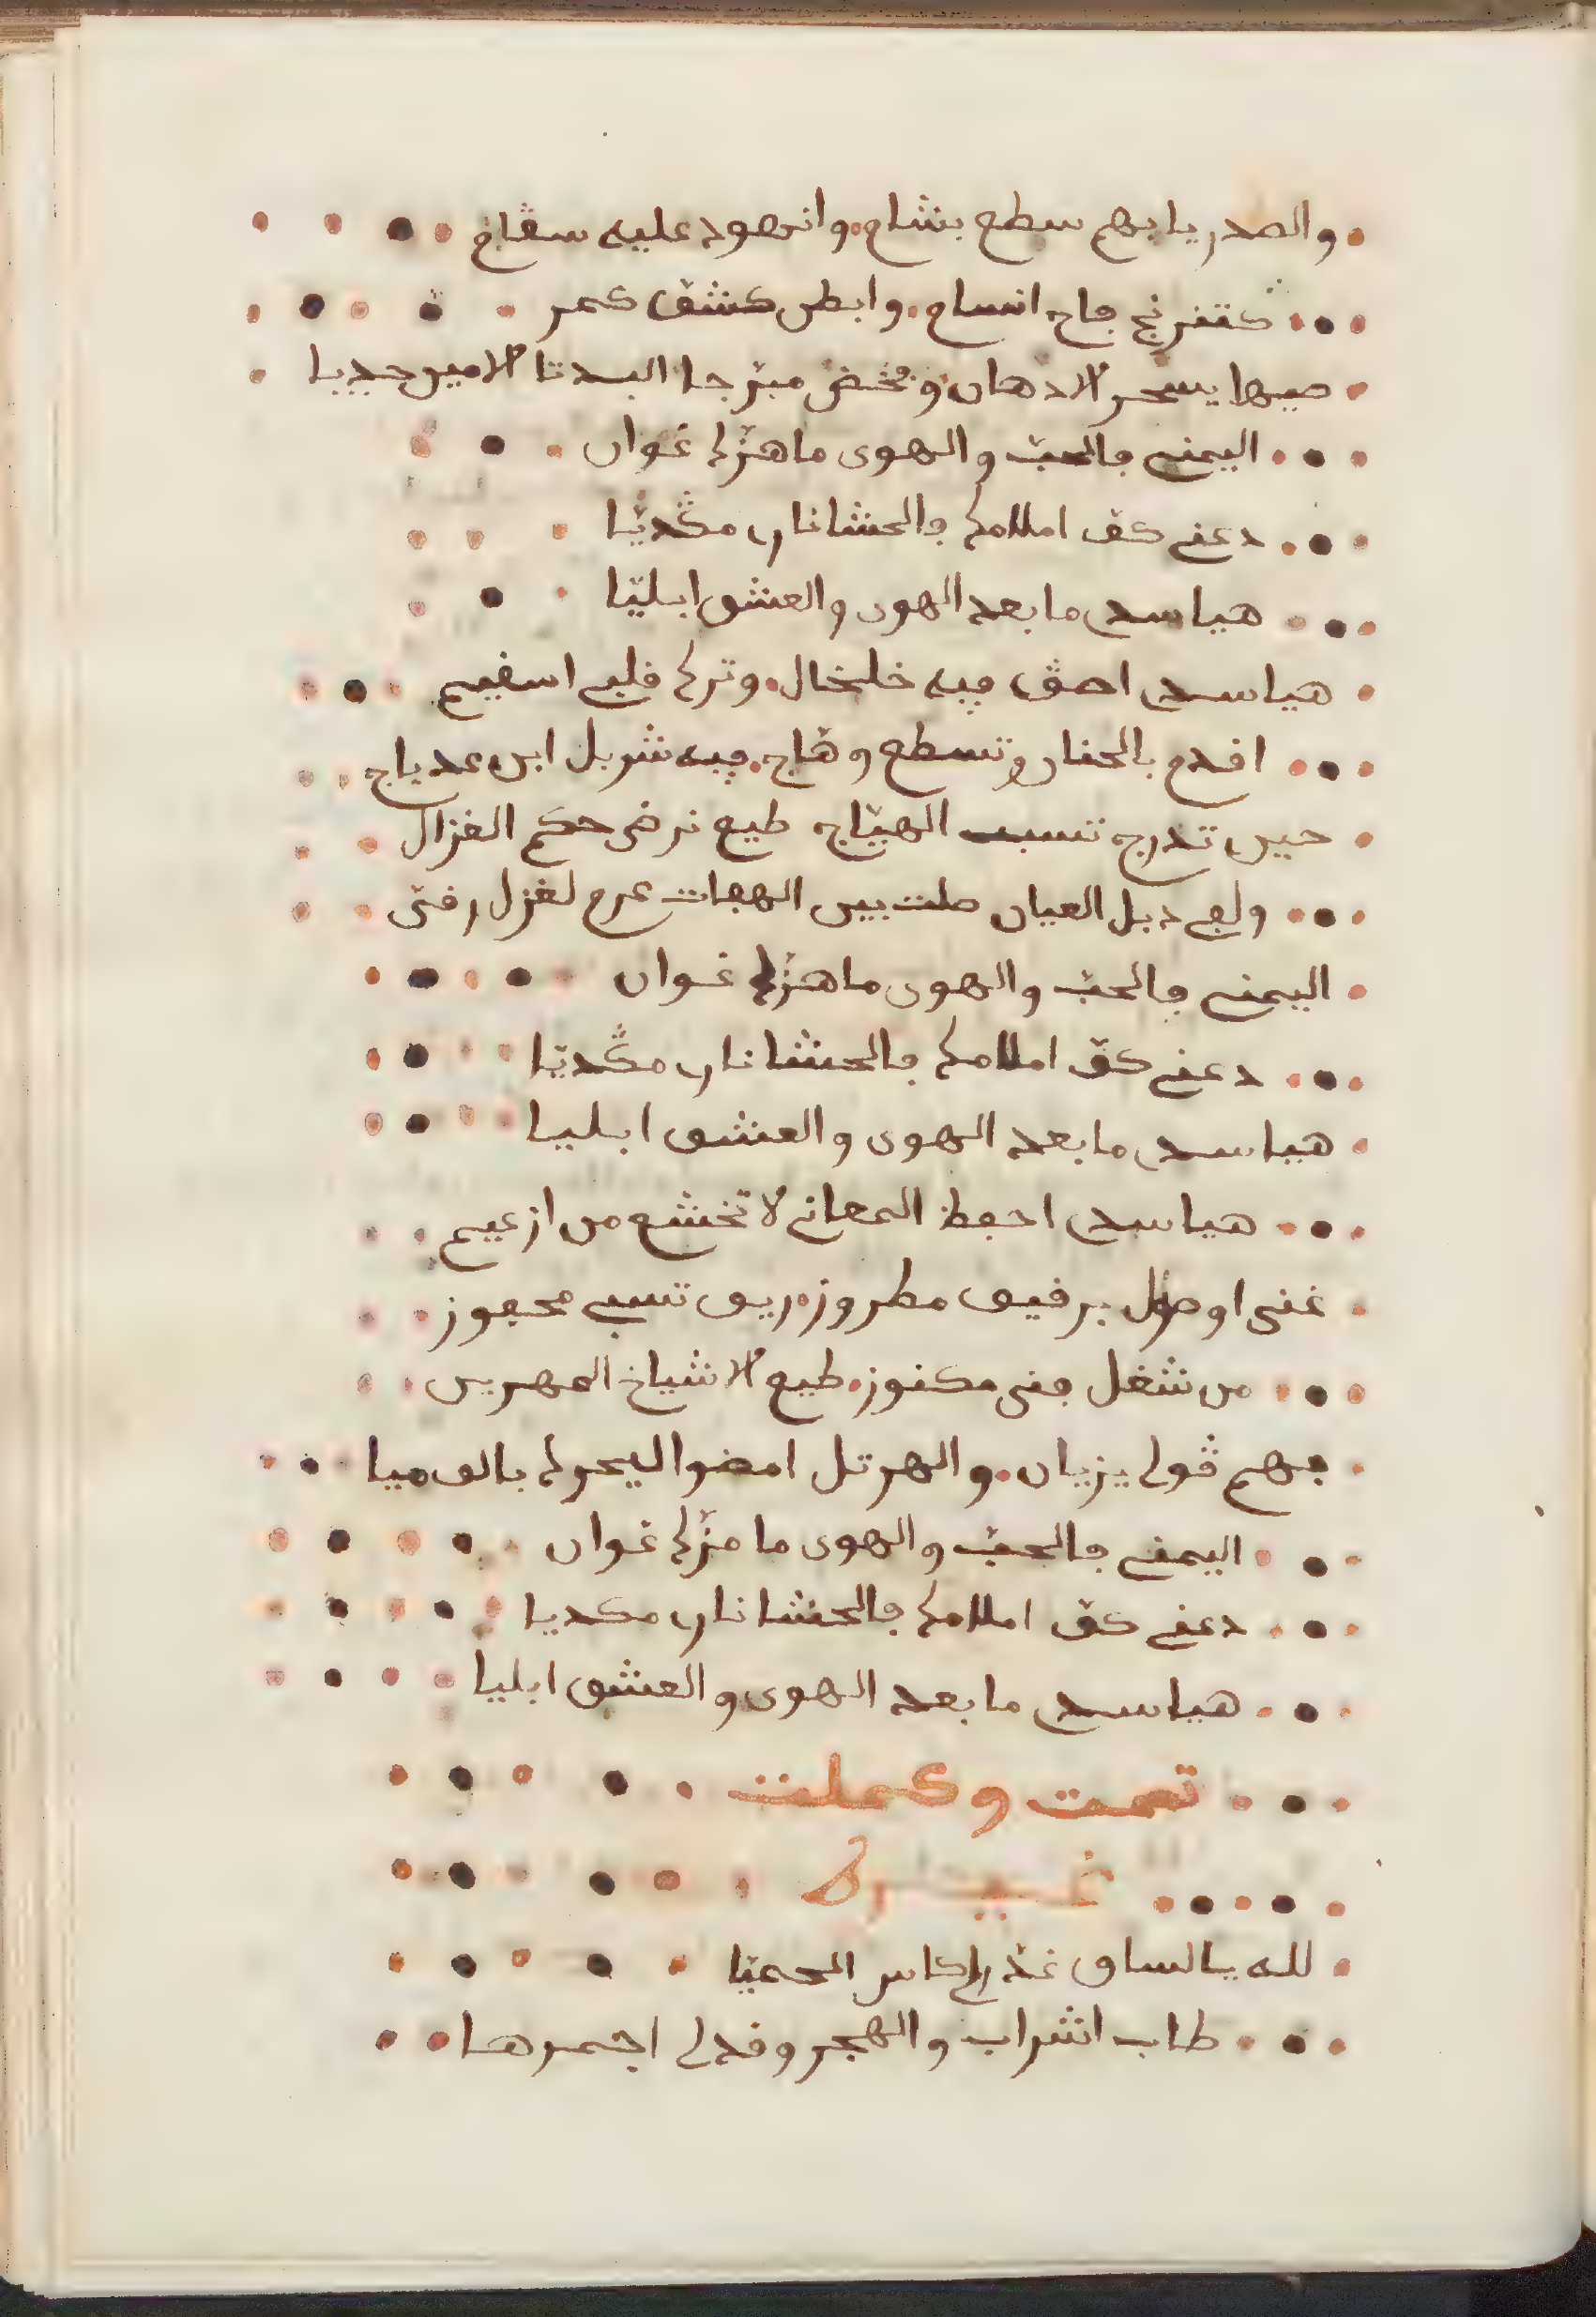 والصدر يا بهم سطح بشاح. وانهود عليه سڢاح
كتفرنج جاج انساج. وابطن كشڢ كمر
صيها يسحر الادهان و مخض مبرجا البدتا الامين جديا
اليمنى جالحب والهوى ما هزك غوان
دعنى كڢ املامك جالحشا نار مڭديا
هيا سيدى ما بعد الهوى والعشق ابليا
هيا سيدى اصڢ جيه خلخال. وترك قلبى اسقيم
اقدم بالحنا وتسطع وهاج. جيه شربل ابن عدياج
حين تدرج تنسب الهياج طيع نرضى حكم الغزال
ولعى دبل العيان صلت بين الهجات عرم لغزل رقى
اليمنى جالحب والهوى ما هزك غوان
دعنى كڢ املامك جالحشا نار مڭديا
هيا سيدى ما بعد الهوى والعشق ابليا
هيا سيدى احفظ المعانى لا تخشع من ازعيم
غنى اوصول برقيق مطروز. ريق تسبى محجوز
من شغل جنى مكنوز. طيع الاشياخ المهرين
بهم ڢول يزيان. والهرتل امضوا ليحرك بالف ميا
اليمنى جالحب والهوى ما مزك غوان
دعنى كڢ املامك جالحشا نار مكديا
هيا سيدى ما بعد الهوى والعشق ابليا
تمت وكملت
غيره
لله يا الساق غذ لى كاس الحميا
طاب اشراب والهجر وقدل اجمرها